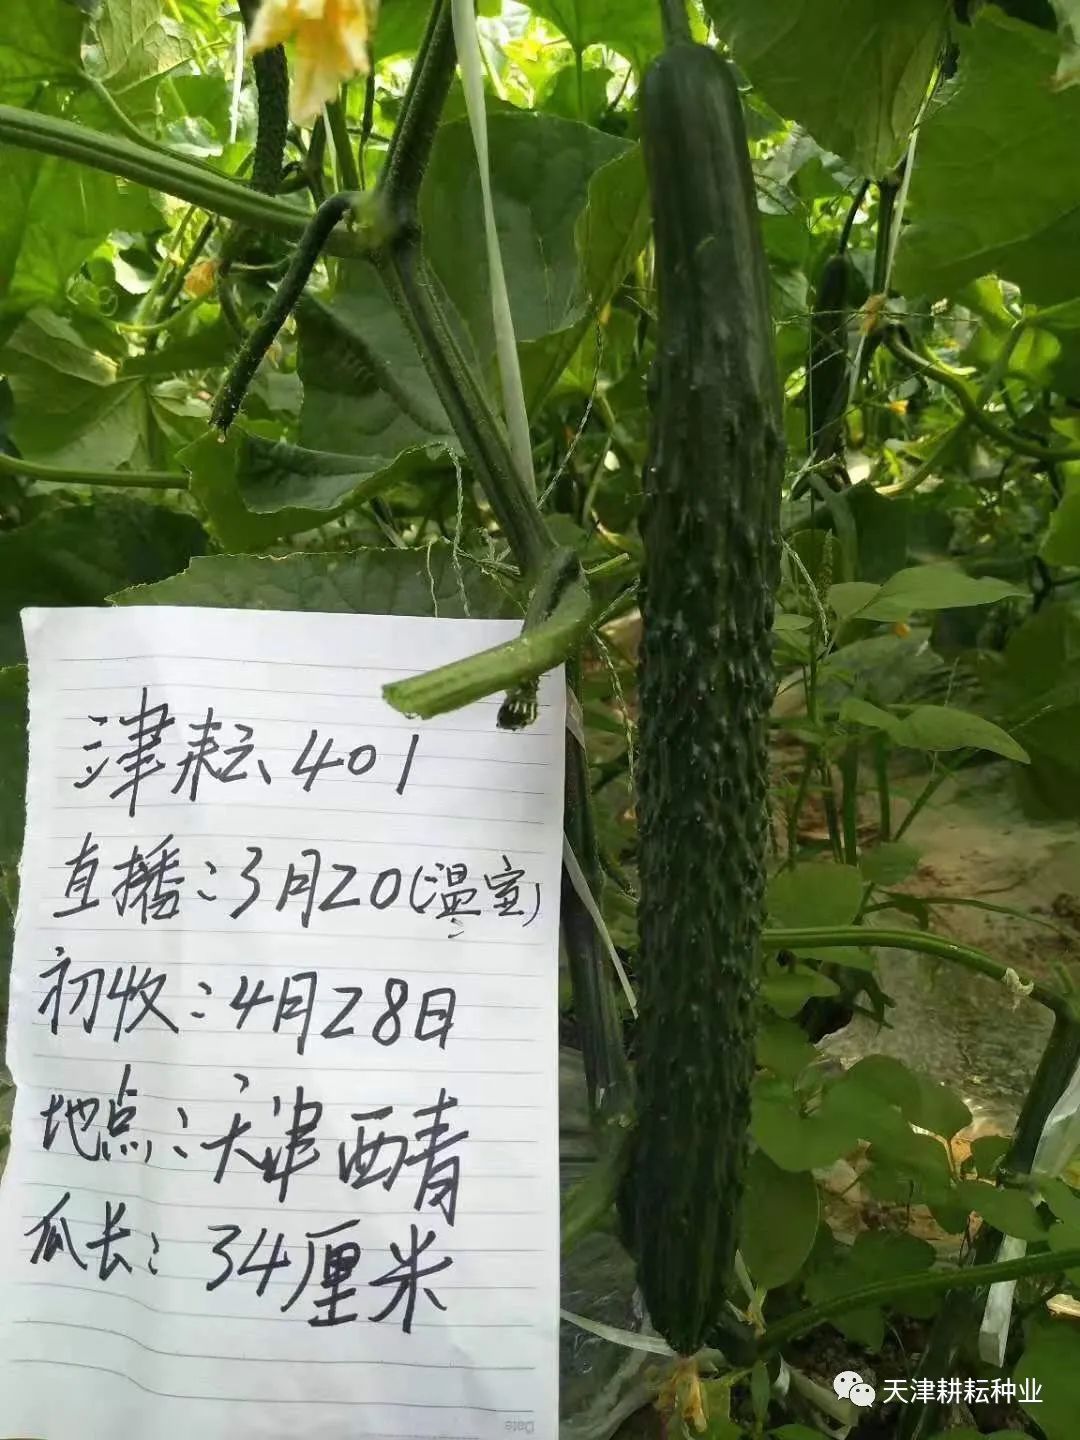 津耘401
直播:3月20(温室)
初收:4月28日
地点:天津西青
瓜长:34厘米
Date
天津耕耘种业